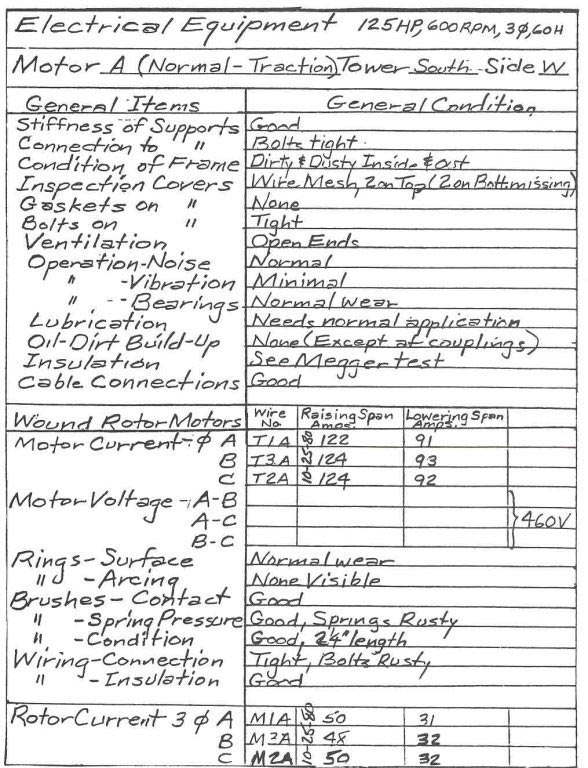 Electrical Equipment 125HP, 600RPM, 3φ, 60H
Motor A (Normal-Traction) Tower South Side W
General Items General Condition
Stiffness of Supports Good
Connection to " Bolts tight.
Condition of Frame Dirty & Dusty Inside & out
Inspection Covers Wire Mesh, 2 on Top (2 on Bott missing)
Gaskets on " None
Bolts on " Tight
Ventilation Open Ends
Operation-Noise Normal
" -Vibration Minimal
" -Bearings Normal wear
Lubrication Needs normal application
Oil-Dirt Build-Up None (Except at couplings)
Insulation See Megger test
Cable Connections Good
Wound Rotor Motors Wire No. Raising Span Amps. Lowering Span Amps.
Motor Current-φ A T1A 10-25-80 122 91
B T3A 124 93
C T2A 124 92
Motor Voltage - A-B
A-C } 460V
B-C
Rings-Surface Normal wear
" -Arcing None Visible
Brushes-Contact Good
" -Spring Pressure Good, Springs Rusty
" -Condition Good, 2¼" length
Wiring-Connection Tight, Bolts Rusty
" -Insulation Good
Rotor Current 3 φ A M1A 10-25-80 50 31
B M3A 48 32
C M2A 50 32